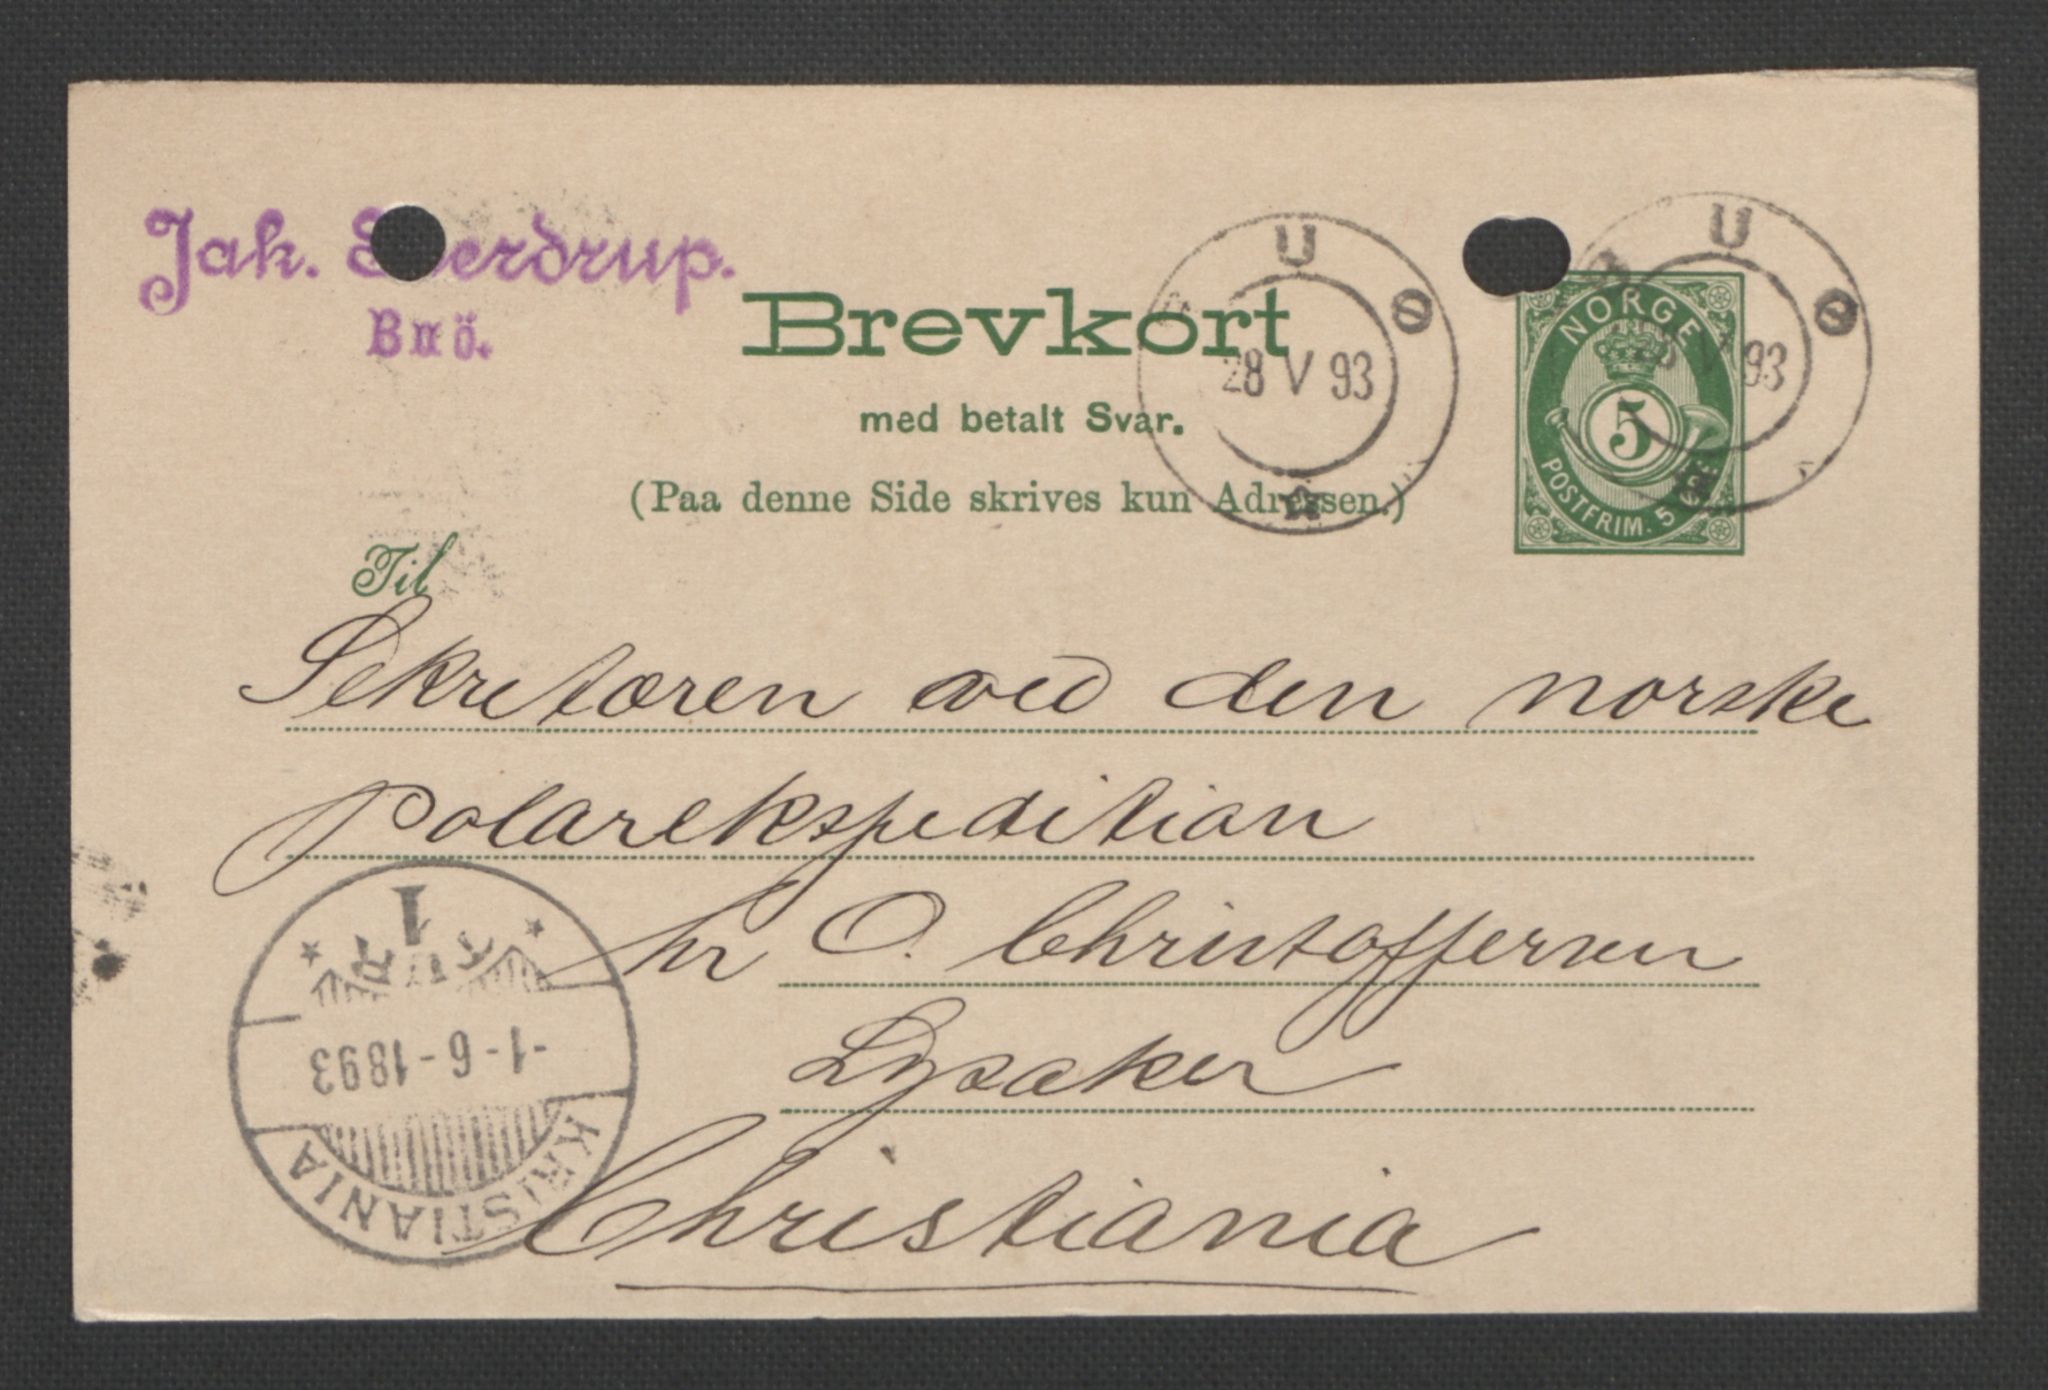 Jak. Sverdrup.
Buö.
Brevkort
med betalt Svar.
(Paa denne Side skrives kun Adressen.)
BUØ
28 V 93
BUØ
V 93
NORGE
5
POSTFRIM. 5 ØRE
Til
Sekretæren ved den norske
Polarekspedition
hr O. Christoffersen
Lysaker
Christiania
KRISTIANIA
-1-6-1893
1